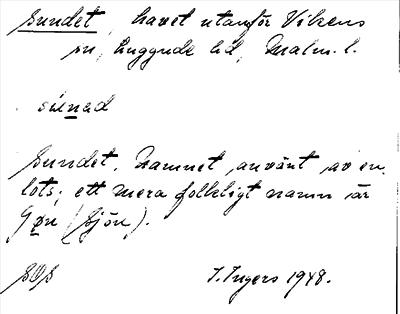 Sundet, havet utanför Vikens
sn, Luggude hd, Malm. l.
sunad
Sundet. Namnet använt av en
lots; ett mera folkligt namn är
Søn (Sjön).
I. Ingers 1948.